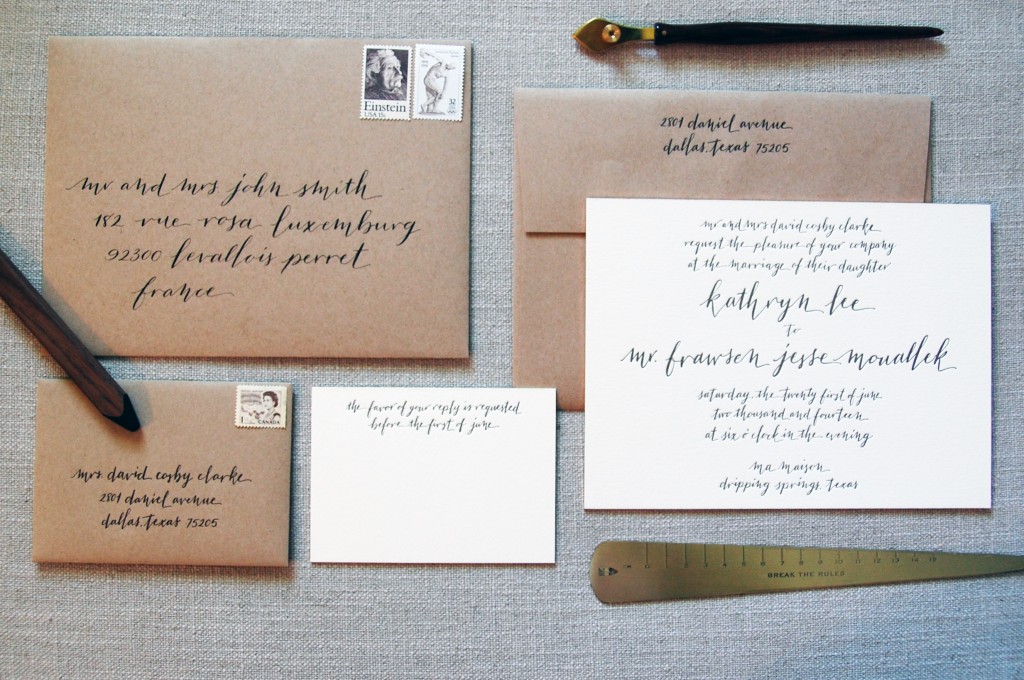 Einstein
USA 15c
32
mr and mrs john smith
182 rue rosa luxemburg
92300 levallois perret
france
2801 daniel avenue
dallas, texas 75205
mr and mrs david cosby clarke
request the pleasure of your company
at the marriage of their daughter
kathryn lee
to
mr. frawsen jesse mouallek
saturday, the twenty first of june
two thousand and fourteen
at six o'clock in the evening
ma maison
dripping springs, texas
1
CANADA
mrs. david cosby clarke
2801 daniel avenue
dallas, texas 75205
the favor of your reply is requested
before the first of june
BREAK THE RULES